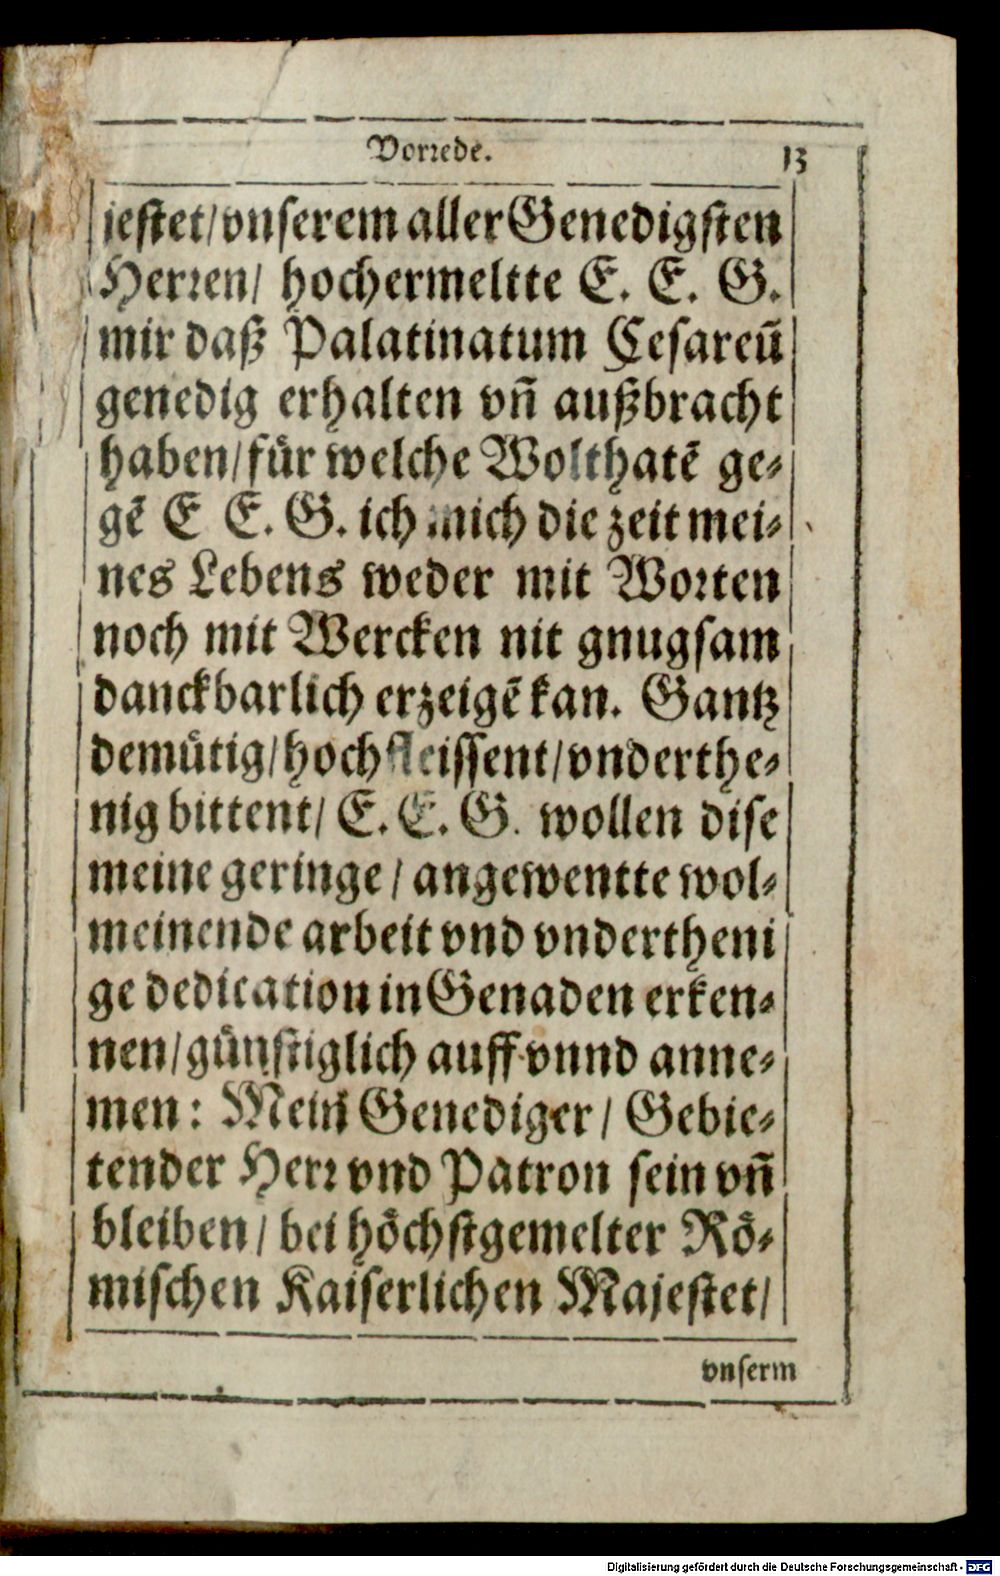 Vorrede. 13
jestet/ vnserem aller Genedigsten
Herren/ hochermeltte E. E. G.
mir daß Palatinatum Cesareū
genedig erhalten vñ außbracht
haben/ für welche Wolthatē ge-
gē E E. G. ich mich die zeit mei-
nes Lebens weder mit Worten
noch mit Wercken nit gnugsam
danckbarlich erzeigē kan. Gantz
demütig/ hochfleissent/ vnderthe-
nig bittent/ E. E. G. wollen dise
meine geringe/ angewentte wol-
meinende arbeit vnd vndertheni
ge dedication in Genaden erken-
nen/ günstiglich auff vnnd anne-
men: Mein Genediger/ Gebie-
tender Herr vnd Patron sein vñ
bleiben/ bei höchstgemelter Rö-
mischen Kaiserlichen Majestet/
vnserm
Digitalisierung gefördert durch die Deutsche Forschungsgemeinschaft - DFG